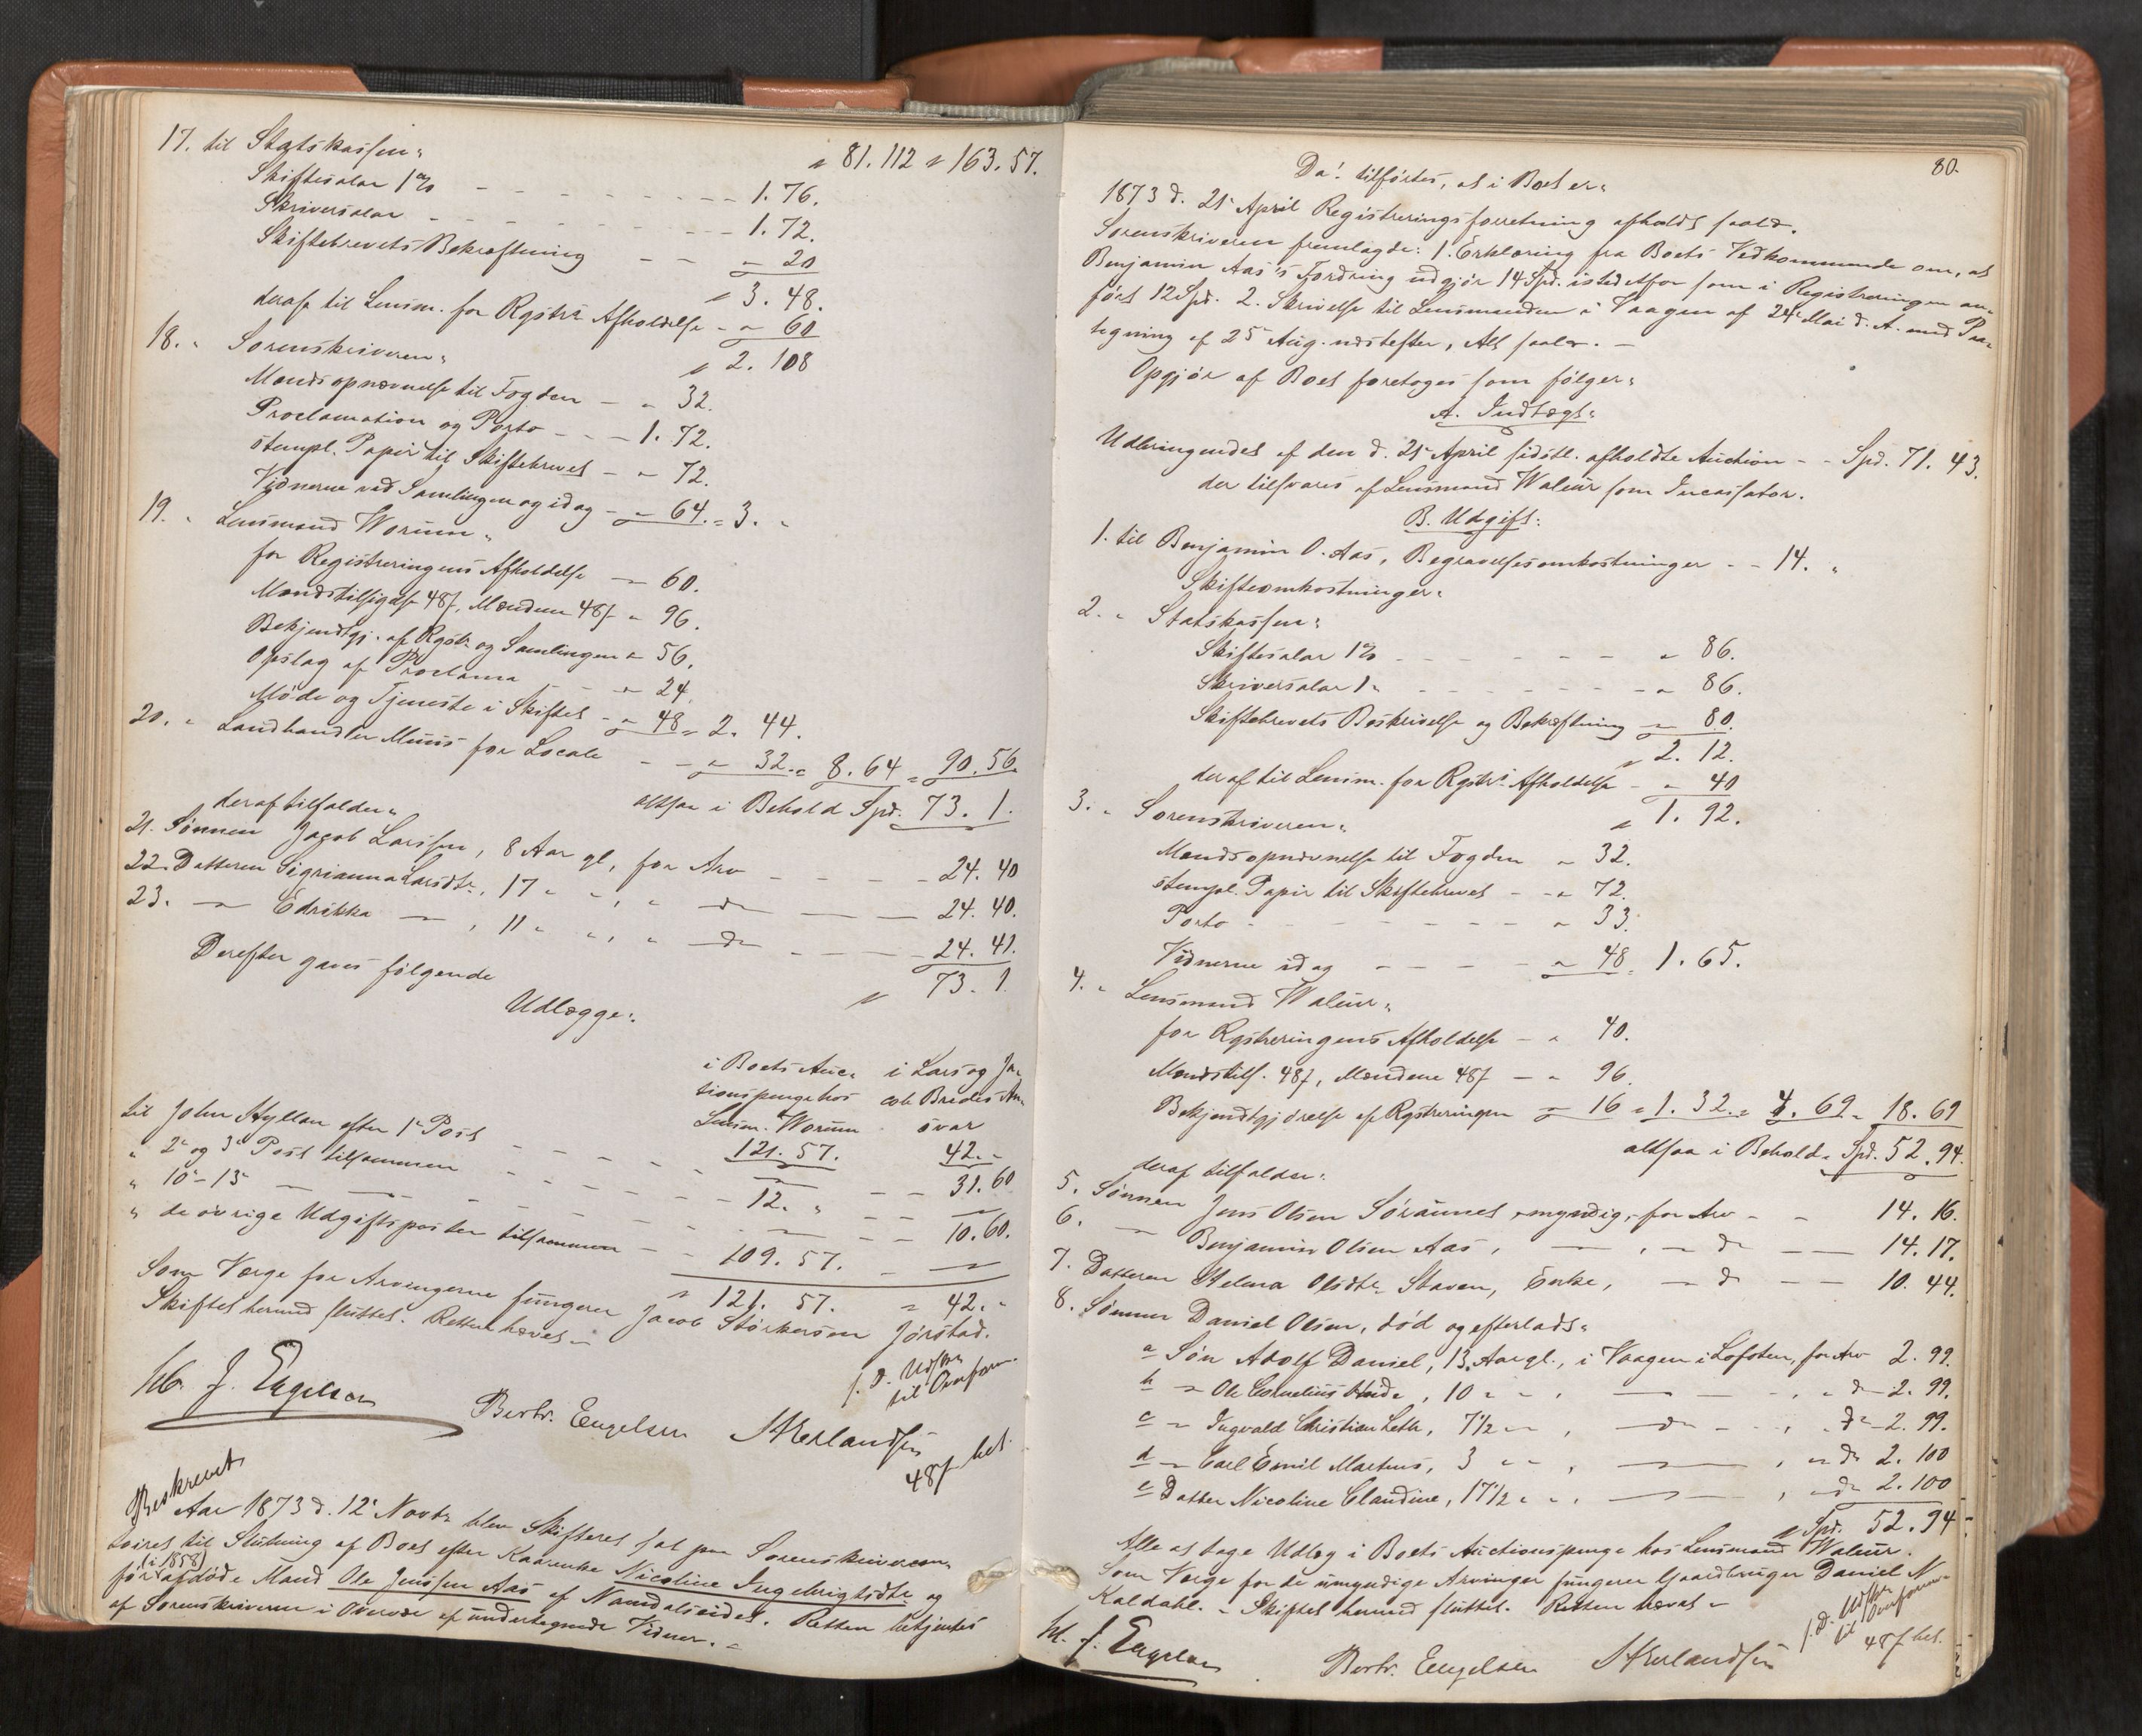 17. til Statskassen:
" 81. 112 " 163. 57.
Skiftesalar 1% - - - 1. 76.
Skriversalar - - - 1. 72.
Skiftebrevets Bekræftning - - " 20
" 3. 48.
deraf til Lensm. for Rgstr: Afholdelse - " 60
" 2. 108
18. " Sorenskriveren:
Mændsopnævnelse til Fogden - " 32.
Proclamation og Porto - - - 1. 72.
stempl. Papir til Skiftebrevet - " 72.
Vidnerne ved Samlingen og idag - " 64. = 3. "
19. " Lensmand Worum:
for Registreringens Afholdelse - 60.
Mændstilsigelse 48 f, Mændene 48 f " 96.
Bekjendtgj. af Rgstr. og Samlingen " 56.
Opslag af Proclama - " 24.
Møde og Tjeneste i Skiftet - " 48 = 2. 44.
20. " Landhandler Muus for Locale - - " 32. = 8. 64 = 90. 56.
altsaa i Behold Spd. 73. 1.
deraf tilfalder:
21. Sønnen Jacob Larssen, 8 Aar gl, for Arv - - - 24. 40
22. Datteren Sigrianna Larsdtr, 17 " ", " do - - 24. 40.
23. — Edrikka —, 11 " ", " do - - 24. 41.
" 73. 1.
Derefter gaves følgende
Udlægge:
i Boets Auc- i Lars og Ja-
tionspenge hos cob Bredes An-
Lensm. Worum svar
121. 57. 42. "
til John Hyllan efter 1e Post - - - — - - 31. 60
" 2e og 3e Post tilsammen - - - 12. " - - —
" 10e - 13e — — - - - — - - 10. 60.
" de øvrige Udgiftsposter tilsammen - - 109. 57. - —
" 121. 57. " 42. "
Som Værge for Arvingerne fungerer Jacob Størkersen Jørstad.
Skiftet hermed sluttet. Retten hævet -
J. Engelsen
Bertr. Engelsen Sterlandsen
48 f bet.
Beskrevet
Aar 1873 d. 12e Novbr blev Skifteret sat paa Sorenskrivercon-
toiret til Slutning af Boet efter Kaarenke Nicoline Ingebrigtsdtr og
(i 1858)
før afdøde Mand Ole Jenssen Aas af Namdalseidet. Retten betjentes
af Sorenskriveren i Overvær af undertegnede Vidner. -
80.
Da: tilførtes, at i Boet er:
1873 d. 25 April Registreringsforretning afholdt saal.
Sorenskriveren fremlagde: 1. Erklæring fra Boets Vedkommende om, at
Benjamin Aas's Fordring udgjør 14 Spd. istedetfor som i Registreringen an-
ført 12 Spd. 2. Skrivelse til Lensmanden i Vaagen af 24e Mai d. A. med Paa-
tegning af 25 Aug. næstefter, Alt saal. -
Opgjør af Boet foretoges som følger:
A. Indtægt:
Udbringendet af den d. 25 April sidstl. afholdte Auction - - Spd. 71. 43.
der tilsvares af Lensmand Waleur som Incassator.
B. Udgift:
1. til Benjamin O. Aas, Begravelsesomkostninger - - 14. "
Skifteomkostninger:
2. " Statskassen:
Skiftesalar 1% - - - " 86.
Skriversalar 1 " - - - " 86.
Skiftebrevets Beskrivelse og Bekræftning " 80.
" 2. 12.
deraf til Lensm. for Rgstr: Afholdelse - " 40
" 1. 92.
3. " Sorenskriveren:
Mændsopnævnelse til Fogden " 32.
stempl. Papir til Skiftebrevet - " 72.
Porto - - - " 33.
Vidnerne idag - - - " 48 = 1. 65.
4. " Lensmand Waleur:
for Rgstreringens Afholdelse - " 40.
Mændstils. 48 f, Mændene 48 f - " 96.
Bekjendtgjørelse af Rgstreringen " 16 = 1. 32. = 4. 69 = 18. 69
altsaa i Behold Spd. 52. 94.
deraf tilfalder:
5. Sønnen Jens Olsen Søraunet, myndig, for Arv - - 14. 16.
6. — Benjamin Olsen Aas, —, — do — 14. 17.
7. Datteren Helena Olsdtr Staven, Enke, — do — 10. 44.
8. Sønnen Daniel Olsen, død og efterladt:
a Søn Adolf Daniel, 13 Aar gl., i Vaagen i Lofoten, for Arv 2. 99.
b " Ole Cornelius, 10 " ", — , " do 2. 99.
c " Ingvald Christian, 7 1/2 " , — do — , " do 2. 99.
d " Carl Emil Martus, 3 " ", — , " do 2. 100
e Datter Nicoline Claudine, 17 1/2 " ", — , " do 2. 100
" Spd. 52. 94.
Alle at tage Udlæg i Boets Auctionspenge hos Lensmand Waleur.
Som Værge for de umyndige Arvinger fungerer Gaardbruger Daniel N.
Kaldahl. - Skiftet hermed sluttet. Retten hævet -
J. Engelsen
Bertr. Engelsen Sterlandsen
48 f bet.